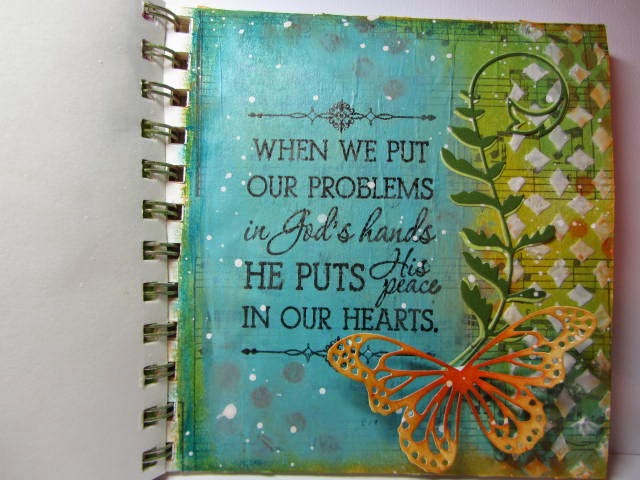 WHEN WE PUT
OUR PROBLEMS
in God's hands
HE PUTS His peace
IN OUR HEARTS.